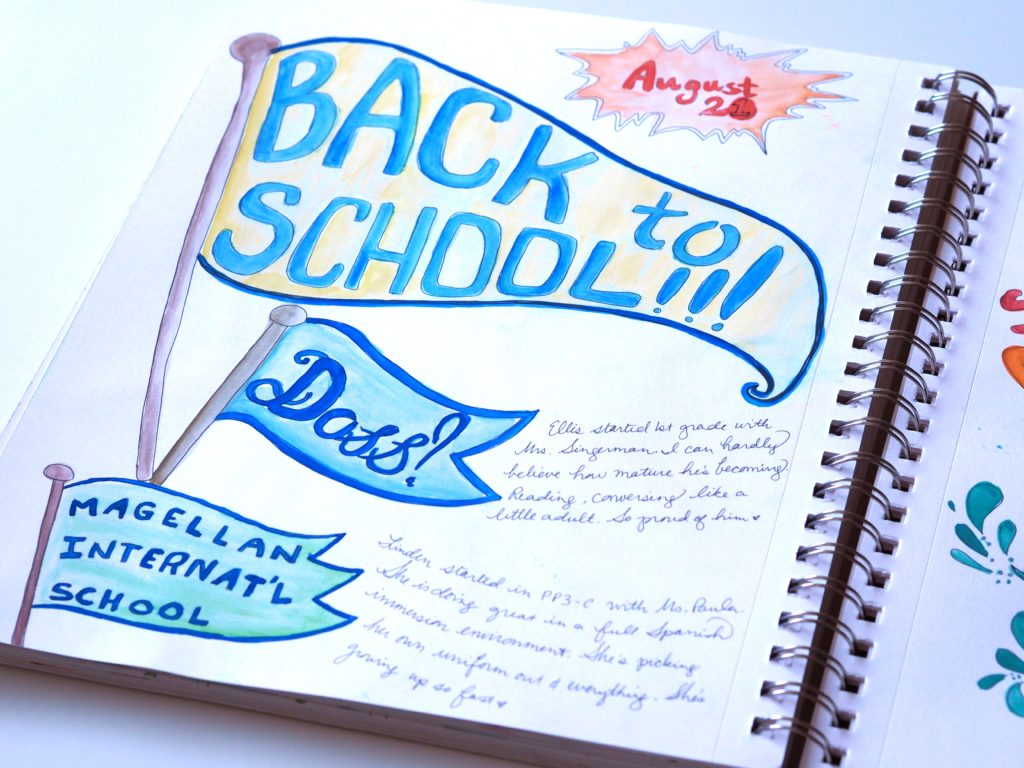 August
21
BACK to
SCHOOL!!!
Dass!
Ellis started 1st grade with
Mrs. Singerman. I can hardly
believe how mature he's becoming.
Reading, conversing like a
little adult. So proud of him ♥
MAGELLAN
INTERNAT'L
SCHOOL
Linden started in PP3-C with Ms. Paula.
She is doing great in a full Spanish
immersion environment. She's picking
her own uniform out & everything. She's
growing up so fast ♥